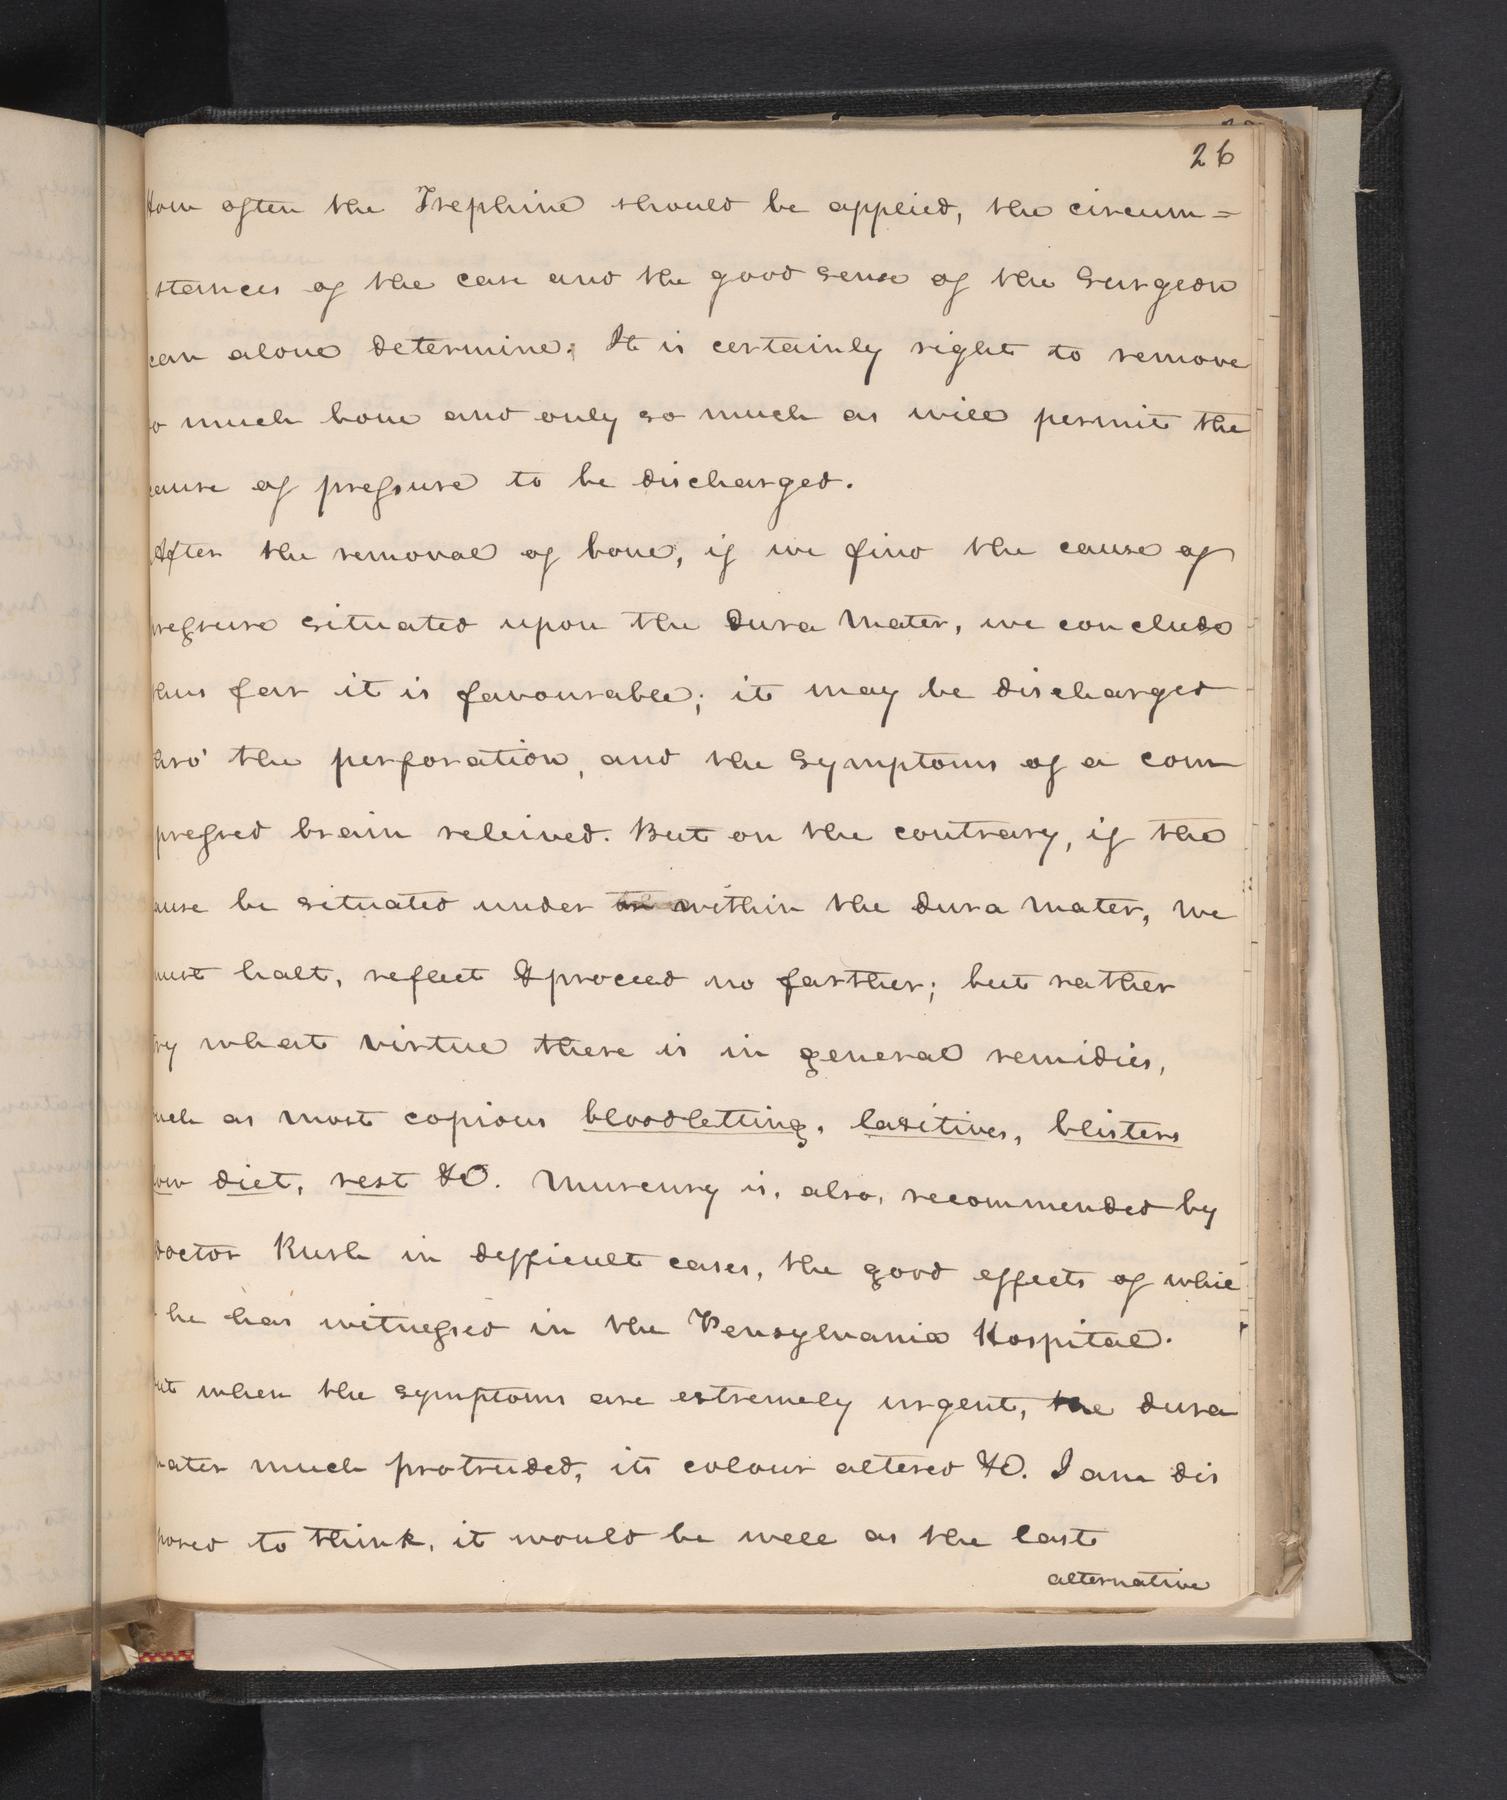 26
How often the Trephine should be applied, the circum=
stances of the case and the good sense of the Surgeon
can alone determine. It is certainly right to remove
o much bone and only so much as will permit the
cause of pressure to be discharged.
After the removal of bone, if we find the cause of
pressure situated upon the Dura Mater, we conclude
thus far it is favourable; it may be discharged
thro' the perforation, and the Symptoms of a com
pressed brain releived. But on the contrary, if the
ause be situated under or within the dura Mater, we
must halt, reflect & proceed no farther; but rather
try what virtue there is in general remidies,
uch as most copious bloodletting, laxitives, blisters
low diet, rest &C. Mureury is, also, recommended by
doctor Rush in difficult cases, the good effects of whic
he has witnessed in the Pensylvania Hospital.
ut when the symptoms are extremely urgent, the dura
mater much protruded, its colour altered &C. I am dis
posed to think, it would be well as the last
alternative